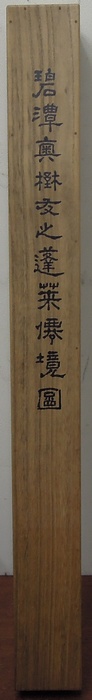 碧潭奥樹友之蓬萊僊境圖